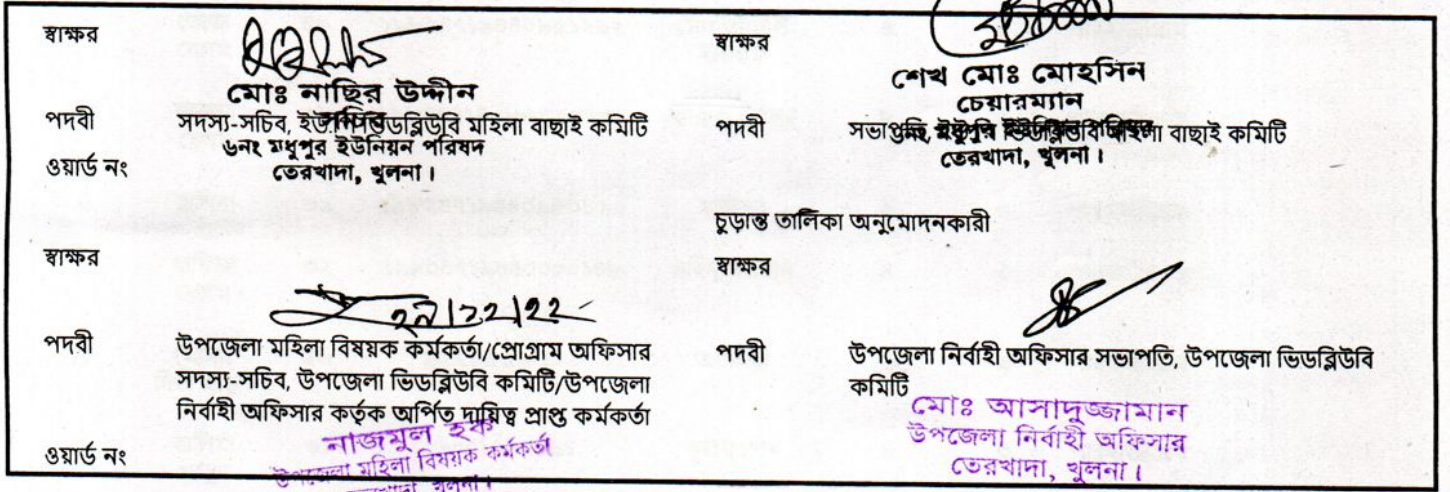 স্বাক্ষর
মোঃ নাছির উদ্দীন
সচিব
পদবী সদস্য-সচিব, ইউপি ভিডব্লিউবি মহিলা বাছাই কমিটি
৬নং মধুপুর ইউনিয়ন পরিষদ
ওয়ার্ড নং
তেরখাদা, খুলনা।
স্বাক্ষর
শেখ মোঃ মোহসিন
চেয়ারম্যান
পদবী সভাপতি, ইউপি ভিডব্লিউবি মহিলা বাছাই কমিটি
৬নং মধুপুর ইউনিয়ন পরিষদ
তেরখাদা, খুলনা।
চুড়ান্ত তালিকা অনুমোদনকারী
স্বাক্ষর
২৯/১২/২২
পদবী উপজেলা মহিলা বিষয়ক কর্মকর্তা/প্রোগ্রাম অফিসার
সদস্য-সচিব, উপজেলা ভিডব্লিউবি কমিটি/উপজেলা
নির্বাহী অফিসার কর্তৃক অর্পিত দায়িত্ব প্রাপ্ত কর্মকর্তা
নাজমুল হক
উপজেলা মহিলা বিষয়ক কর্মকর্তা
ওয়ার্ড নং
তেরখাদা, খুলনা।
স্বাক্ষর
পদবী উপজেলা নির্বাহী অফিসার সভাপতি, উপজেলা ভিডব্লিউবি
কমিটি
মোঃ আসাদুজ্জামান
উপজেলা নির্বাহী অফিসার
তেরখাদা, খুলনা।